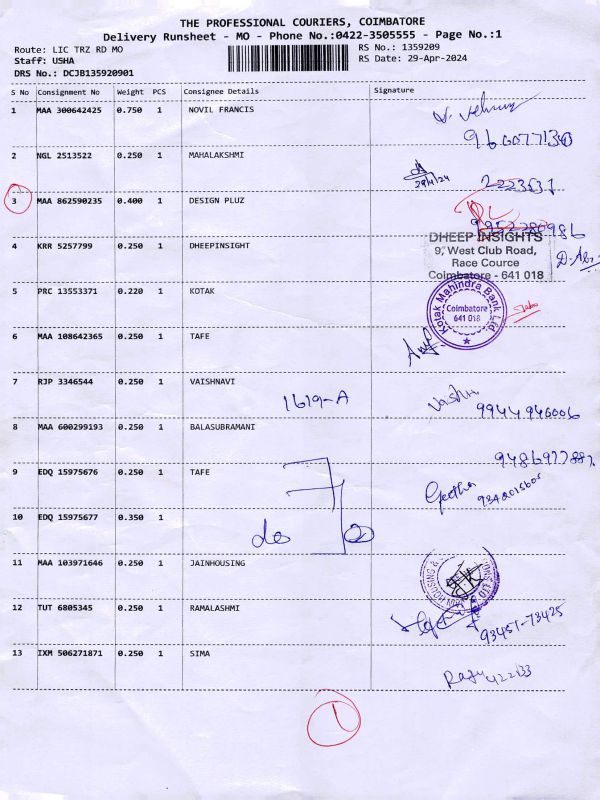 THE PROFESSIONAL COURIERS, COIMBATORE
Delivery Runsheet - MO - Phone No.:0422-3505555 - Page No.:1
Route: LIC TRZ RD MO
RS No.: 1359209
Staff: USHA
RS Date: 29-Apr-2024
DRS No.: DCJB135920901
S No Consignment No Weight PCS Consignee Details Signature
1 MAA 300642425 0.750 1 NOVIL FRANCIS
2 NGL 2513522 0.250 1 MAHALAKSHMI
29/4/24
3 MAA 862590235 0.400 1 DESIGN PLUZ
4 KRR 5257799 0.250 1 DHEEPINSIGHT
DHEEP INSIGHTS
9, West Club Road,
Race Cource
Coimbatore - 641 018
5 PRC 13553371 0.220 1 KOTAK
Kotak Mahindra Bank Ltd.
Coimbatore
641 018
6 MAA 108642365 0.250 1 TAFE
7 RJP 3346544 0.250 1 VAISHNAVI
1619-A
9944946006
8 MAA 600299193 0.250 1 BALASUBRAMANI
9 EDQ 15975676 0.250 1 TAFE
Geetha
10 EDQ 15975677 0.350 1
do
11 MAA 103971646 0.250 1 JAINHOUSING
12 TUT 6805345 0.250 1 RAMALASHMI
93451-73425
13 IXM 506271871 0.250 1 SIMA
Raju 422133
1